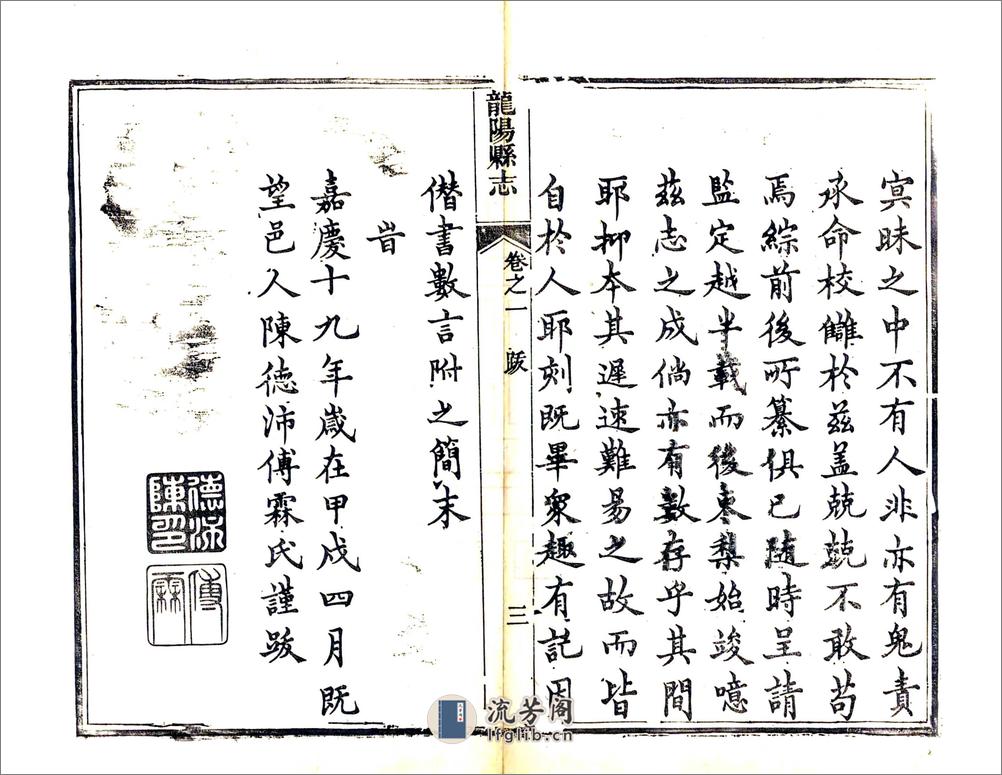 冥昧之中不有人非亦有鬼責
永命校讎於茲盖兢兢不敢苟
焉綜前後所纂俱已隨時呈請
監定越半載而後棗梨始竣噫
茲志之成倘亦有數存乎其間
耶抑本其遲速難易之故而皆
自於人耶刻既畢衆趣有記因
龍陽縣志
卷之一
跋
三
僭書數言附之簡末
旹
嘉慶十九年歲在甲戌四月既
望邑人陳德沛傅霖氏謹跋
德沛
陳印
傅
霖
流芳阁
lfglib.cn